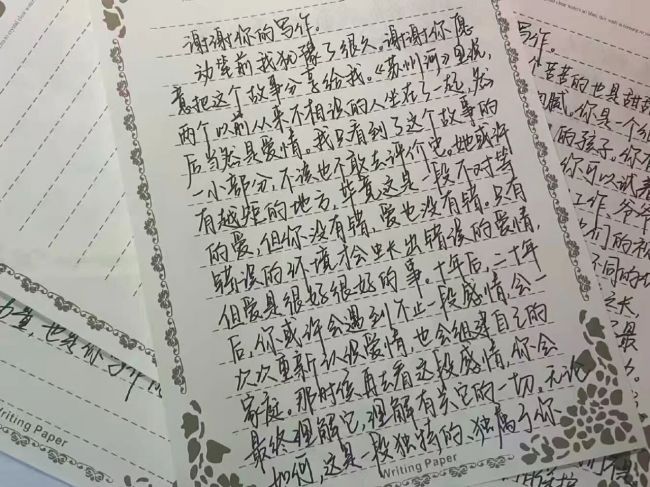 谢谢你的写作。
动笔前我犹豫了很久。谢谢你愿
意把这个故事分享给我。《苏州河》里说,
两个以前从来不相识的人坐在了一起,然
后当然是爱情。我只看到了这个故事的
一小部分,不该也不敢去评价它。她或许
有越矩的地方,毕竟这是一段不对等
的爱,但你没有错,爱也没有错。只有
错误的环境才会生长出错误的爱情,
但爱是很好很好的事。十年后,二十年
后,你或许会遇到不止一段感情,会一
次次重新认识爱情,也会组建自己的
家庭。那时候再去看这段感情,你会
最终理解它,理解有关它的一切。无论
如何,这是一段独特的、独属于你
Writing Paper
写作。
个苦苦的也是甜甜
你是一个
的孩子。你
你可以试着
工作、爷爷
们的
不同的
之长,
了最
也
Writing Paper